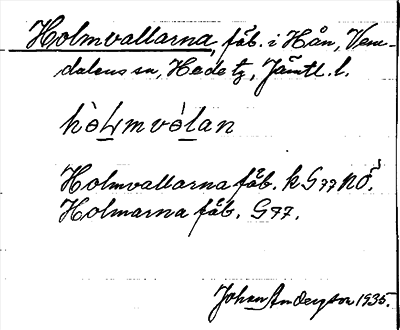 Holmvallarna, fåb. i Hån, Vem-
dalens sn, Hede tg, Jämtl. l.
hòlmvòlan
Holmvallarna fåb. k G77 NÖ.
Holmarna fåb. G77.
Johan Anderson 1935.